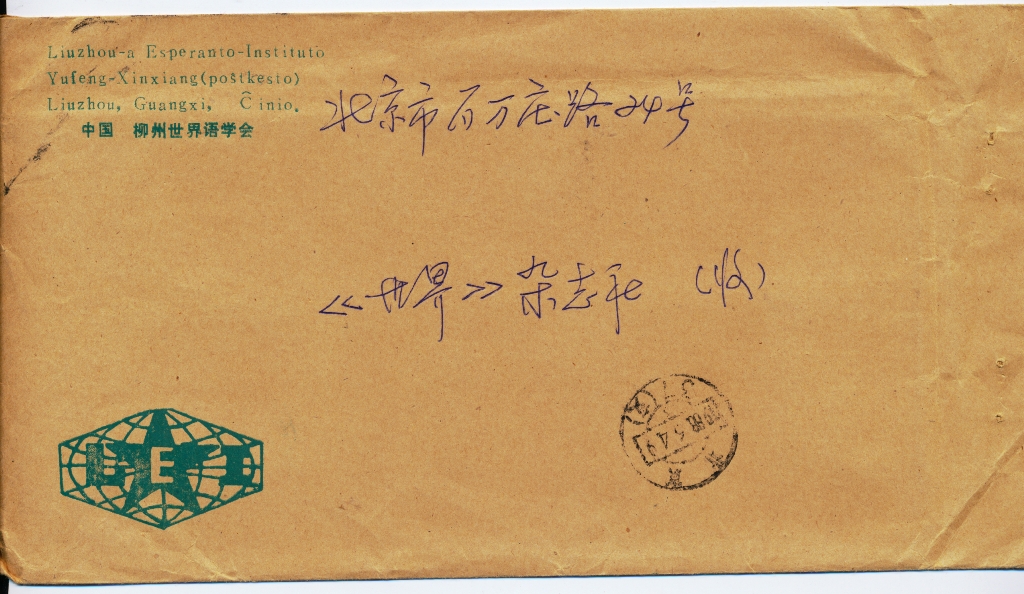 Liuzhou-a Esperanto-Instituto
Yufeng-Xinxiang(poŝtkesto)
Liuzhou, Guangxi, Ĉinio.
中国 柳州世界语学会
北京市百万庄路24号
《世界》杂志社 (收)
LEI
北京